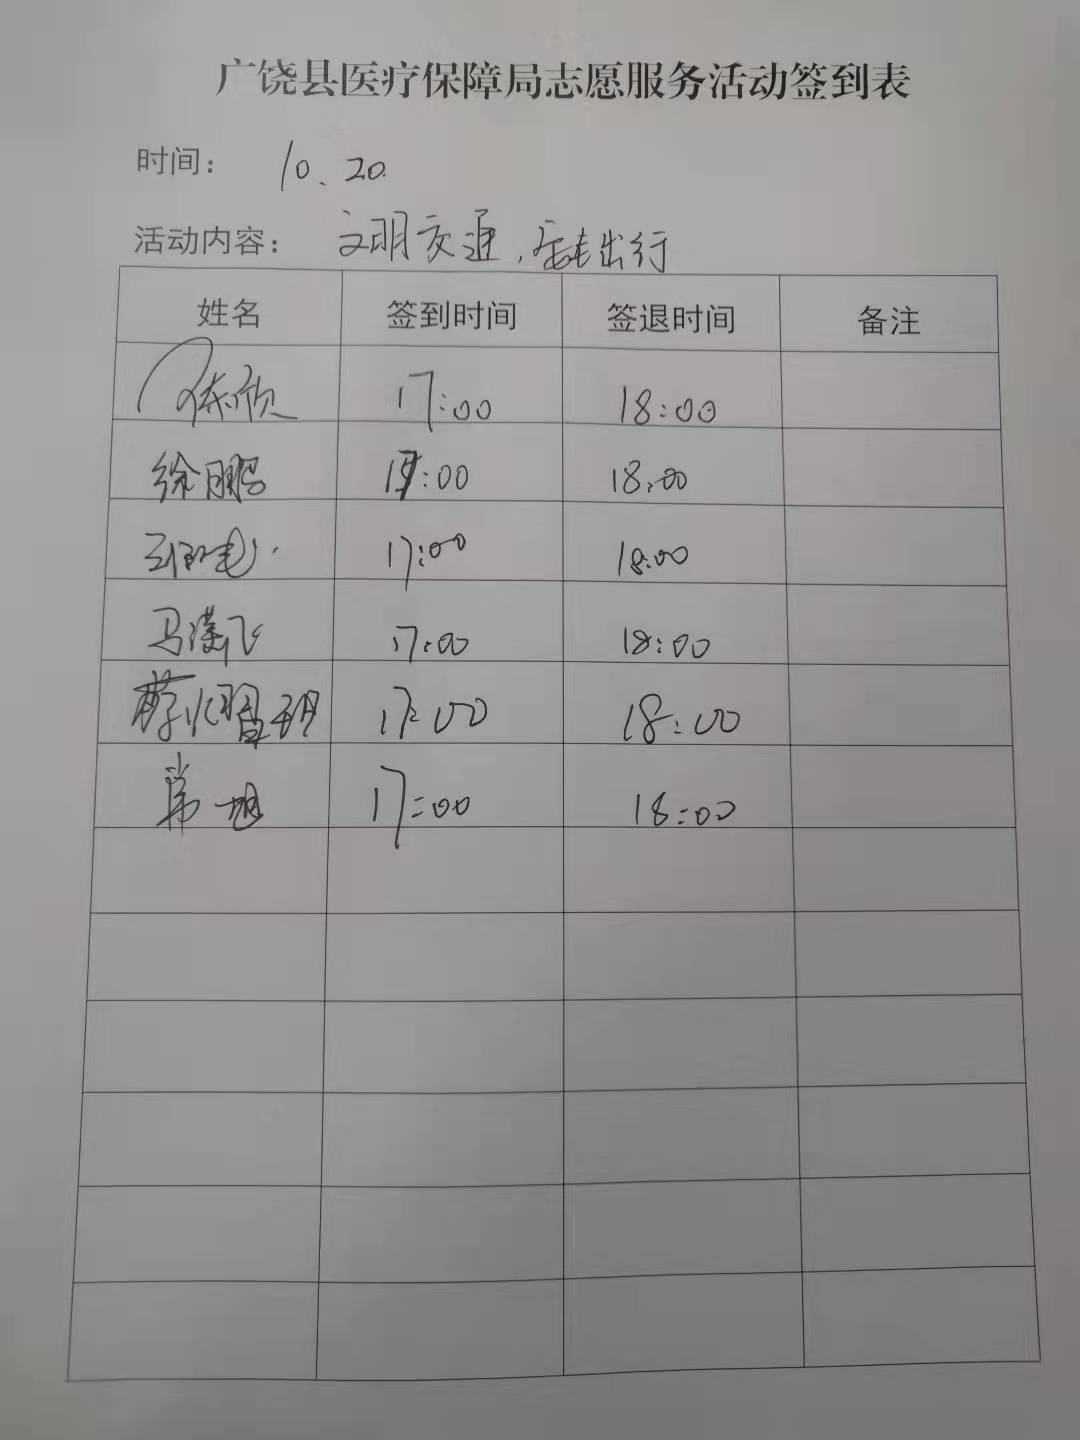 广饶县医疗保障局志愿服务活动签到表
时间： 10.20
活动内容： 文明交通，安全出行
姓名 签到时间 签退时间 备注
陈欣 17:00 18:00
徐鹏 17:00 18:00
17:00 18:00
马潇飞 17:00 18:00
17:00 18:00
常旭 17:00 18:00